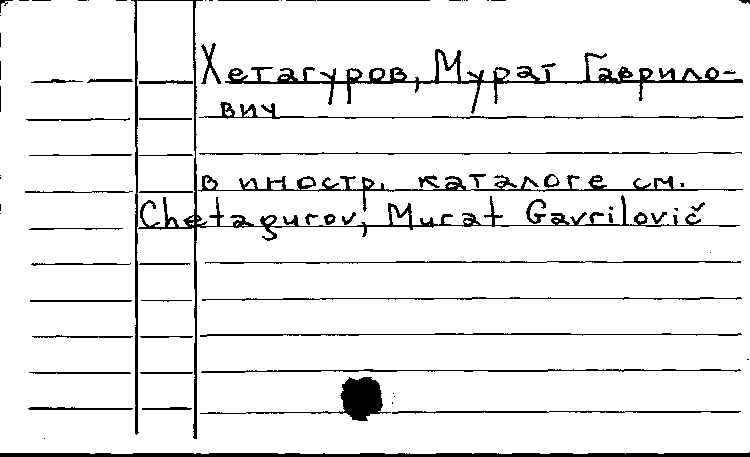 Хетагуров, Мурат Гаврило-
вич
в иностр. каталоге см.
Chetagurov, Murat Gavrilovič